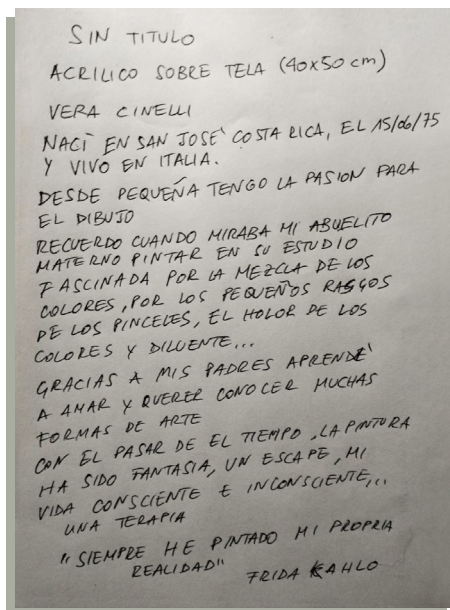 SIN TITULO
ACRILICO SOBRE TELA (40x50 cm)
VERA CINELLI
NACÌ EN SAN JOSÈ COSTA RICA, EL 15/06/75
Y VIVO EN ITALIA.
DESDE PEQUEÑA TENGO LA PASION PARA
EL DIBUJO
RECUERDO CUANDO MIRABA MI ABUELITO
MATERNO PINTAR EN SU ESTUDIO
FASCINADA POR LA MEZCLA DE LOS
COLORES, POR LOS PEQUEÑOS RASGOS
DE LOS PINCELES, EL HOLOR DE LOS
COLORES Y DILUENTE...
GRACIAS A MIS PADRES APRENDÈ
A AMAR Y QUERER CONOCER MUCHAS
FORMAS DE ARTE
CON EL PASAR DE EL TIEMPO, LA PINTURA
HA SIDO FANTASIA, UN ESCAPE, MI
VIDA CONSCIENTE E INCONSCIENTE,..
UNA TERAPIA
"SIEMPRE HE PINTADO MI PROPRIA
REALIDAD"
FRIDA KAHLO